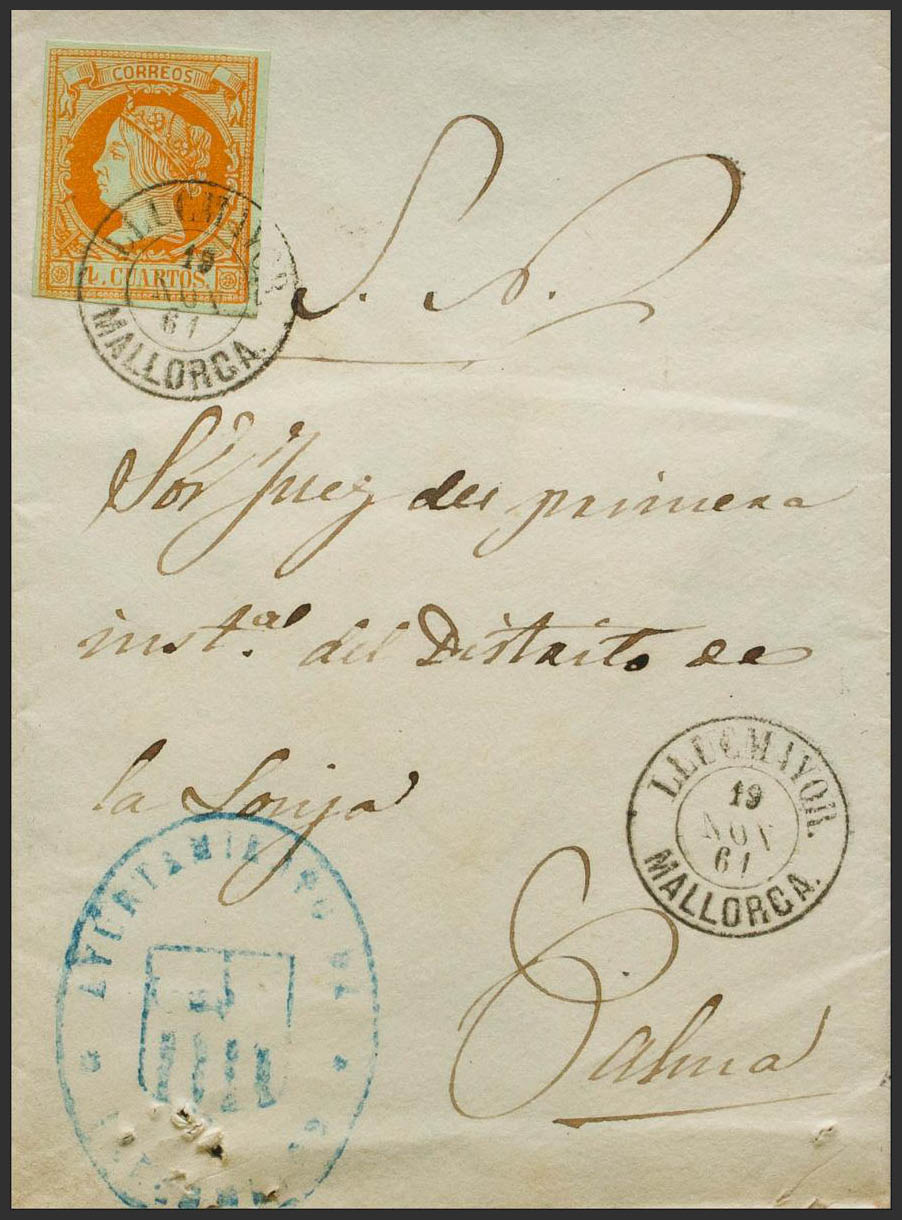 CORREOS
4. CUARTOS.
LLUCMAYOR
19
NOV
61
MALLORCA.
S. N.
Sor Juez de primera
inst.al del Distrito de
la Lonja
LLUCMAYOR.
19
NOV
61
MALLORCA.
AYUNTAMIENTO DE
Palma